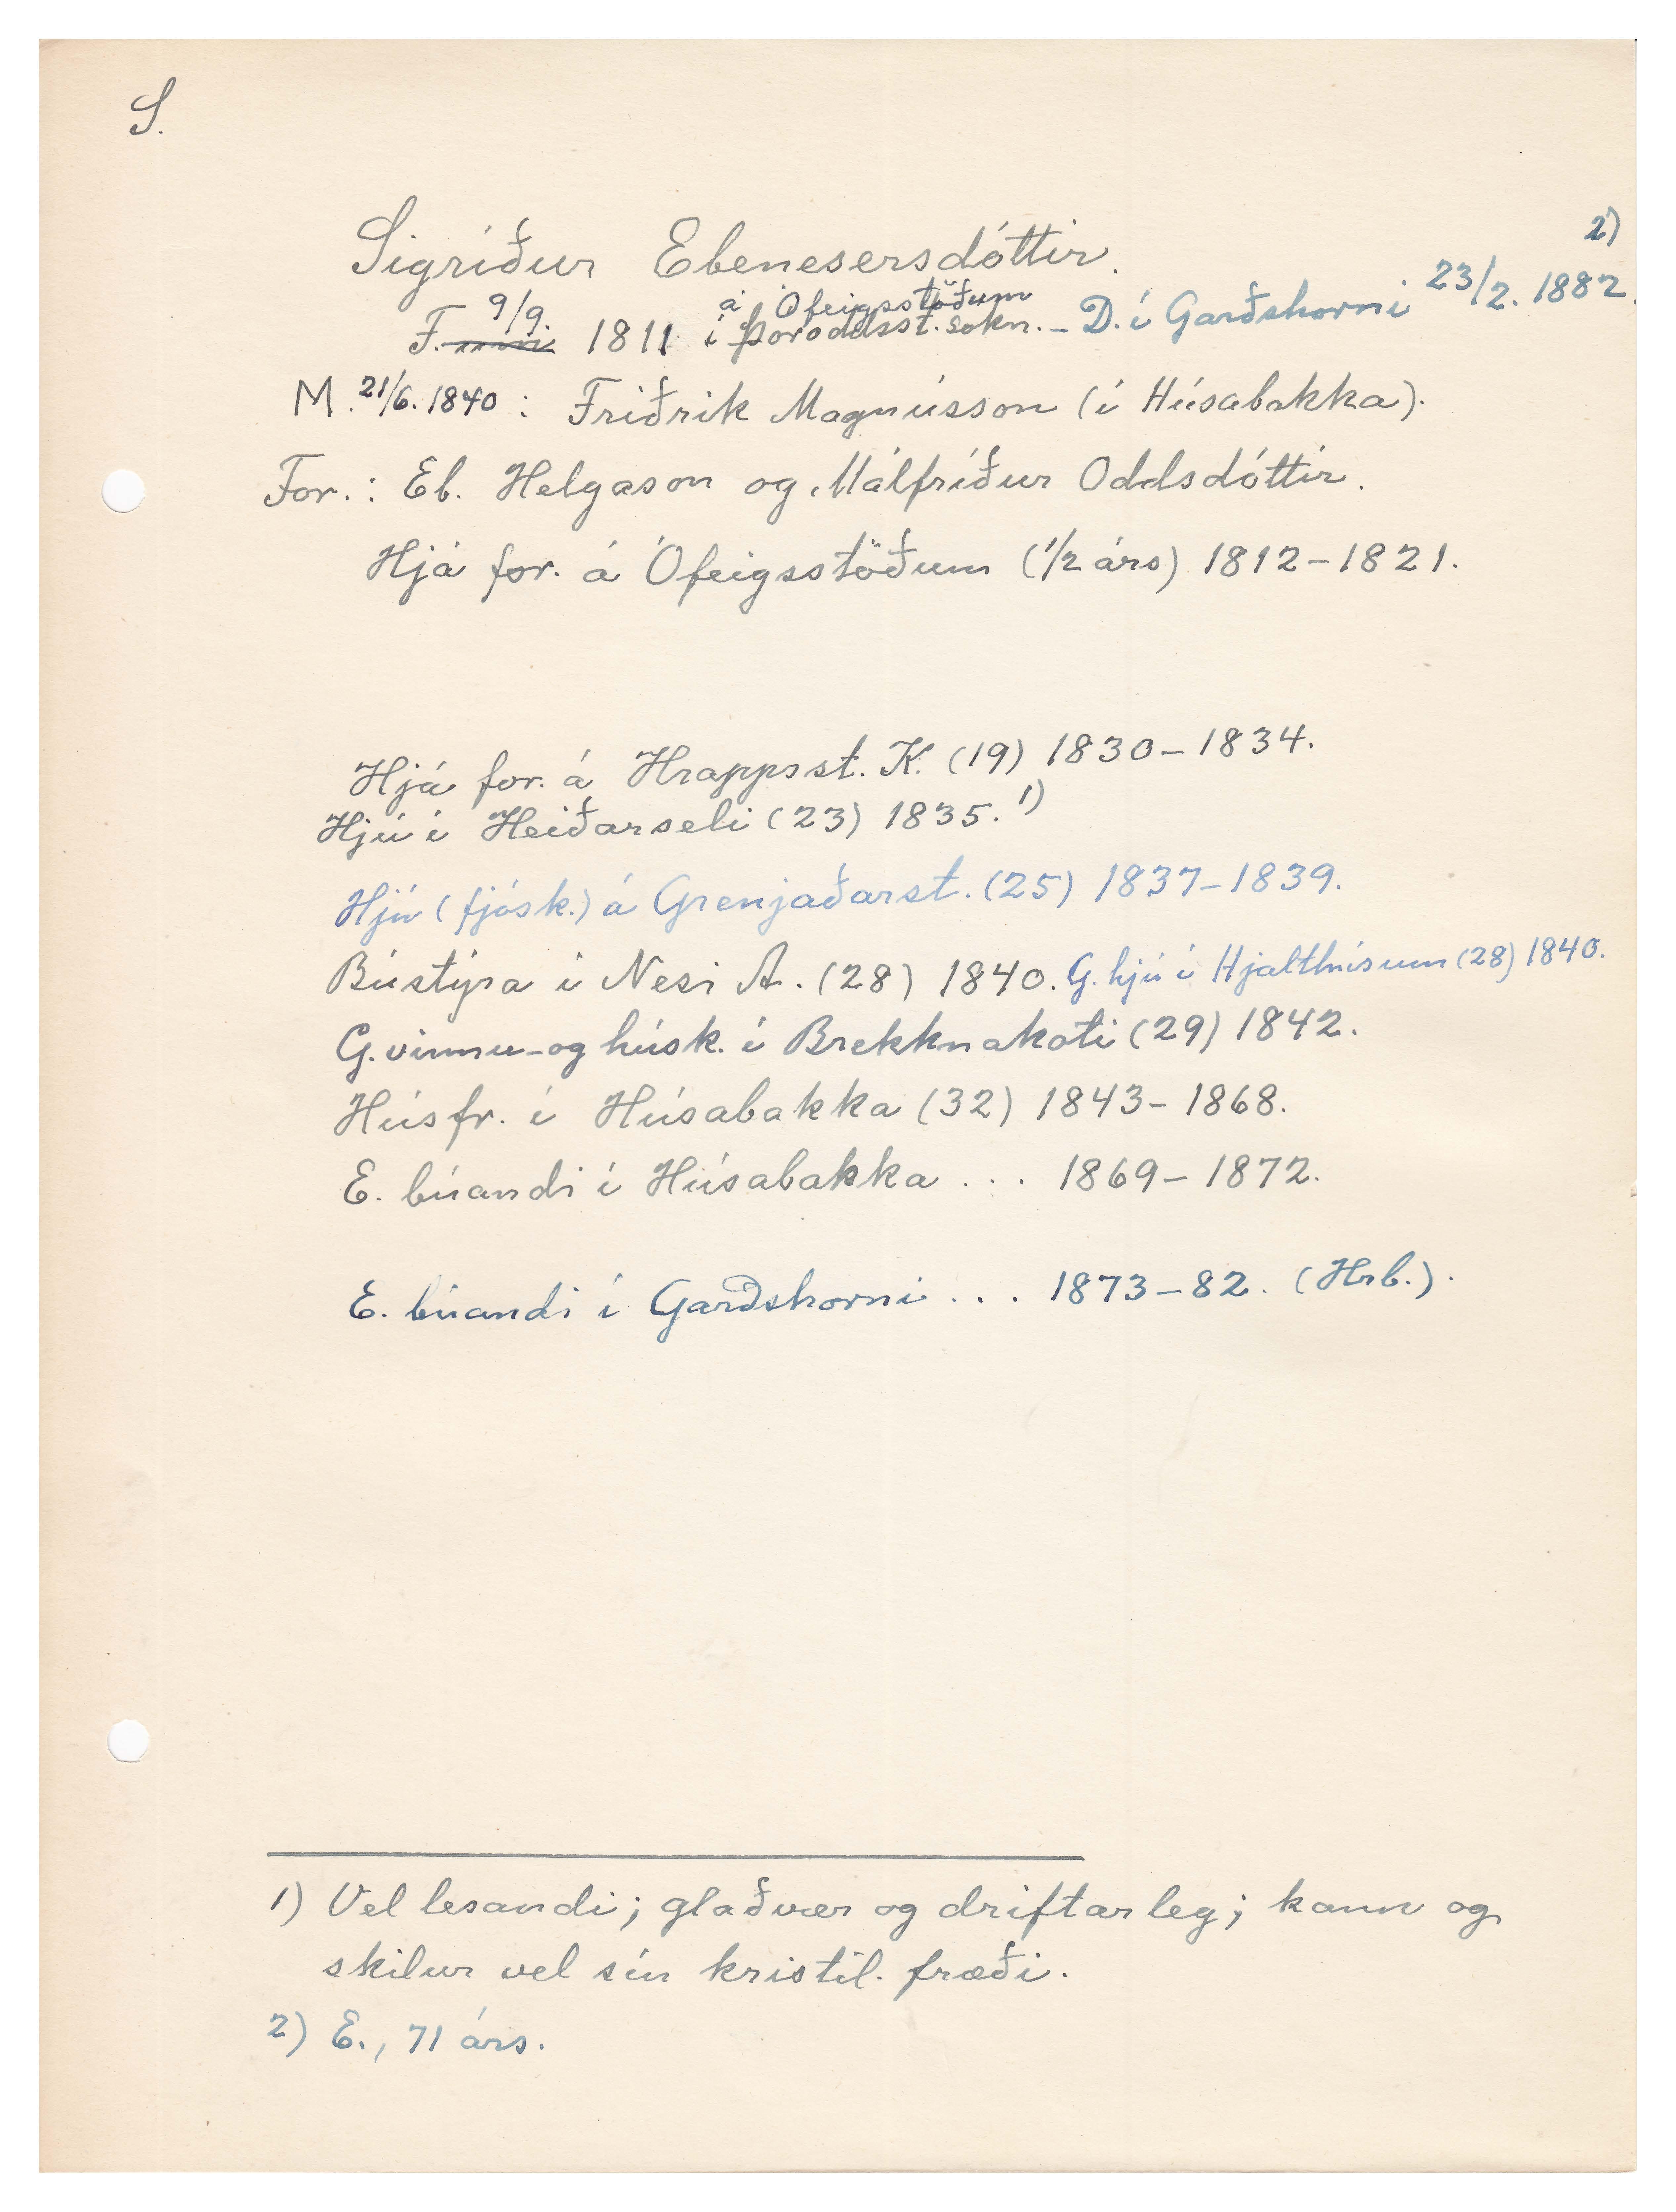 S.
Sigríður Ebenesersdóttir.
F. 9/9. 1811 á Ófeigsstöðum í Þóroddsst. sókn. – D. í Garðshorni 23/2. 1882. 2)
M. 21/6. 1840 : Friðrik Magnússon (í Húsabakka).
For. : Eb. Helgason og Málfríður Oddsdóttir.
Hjá for. á Ófeigsstöðum (1/2 árs) 1812–1821.
Hjá for. á Hrappsst. K. (19) 1830–1834.
Hjú í Heiðarseli (23) 1835. 1)
Hjú (fjósk.) á Grenjaðarst. (25) 1837–1839.
Bústýra í Nesi A. (28) 1840. G. hjú í Hjalthúsum (28) 1840.
G. vinnu- og húsk. í Brekknakoti (29) 1842.
Húsfr. í Húsabakka (32) 1843–1868.
E. búandi í Húsabakka . . . 1869–1872.
E. búandi í Garðshorni . . . 1873–82. (Hrb.).
1) Vel lesandi; glaðvær og driftarleg; kann og
skilur vel sín kristil. fræði.
2) E., 71 árs.